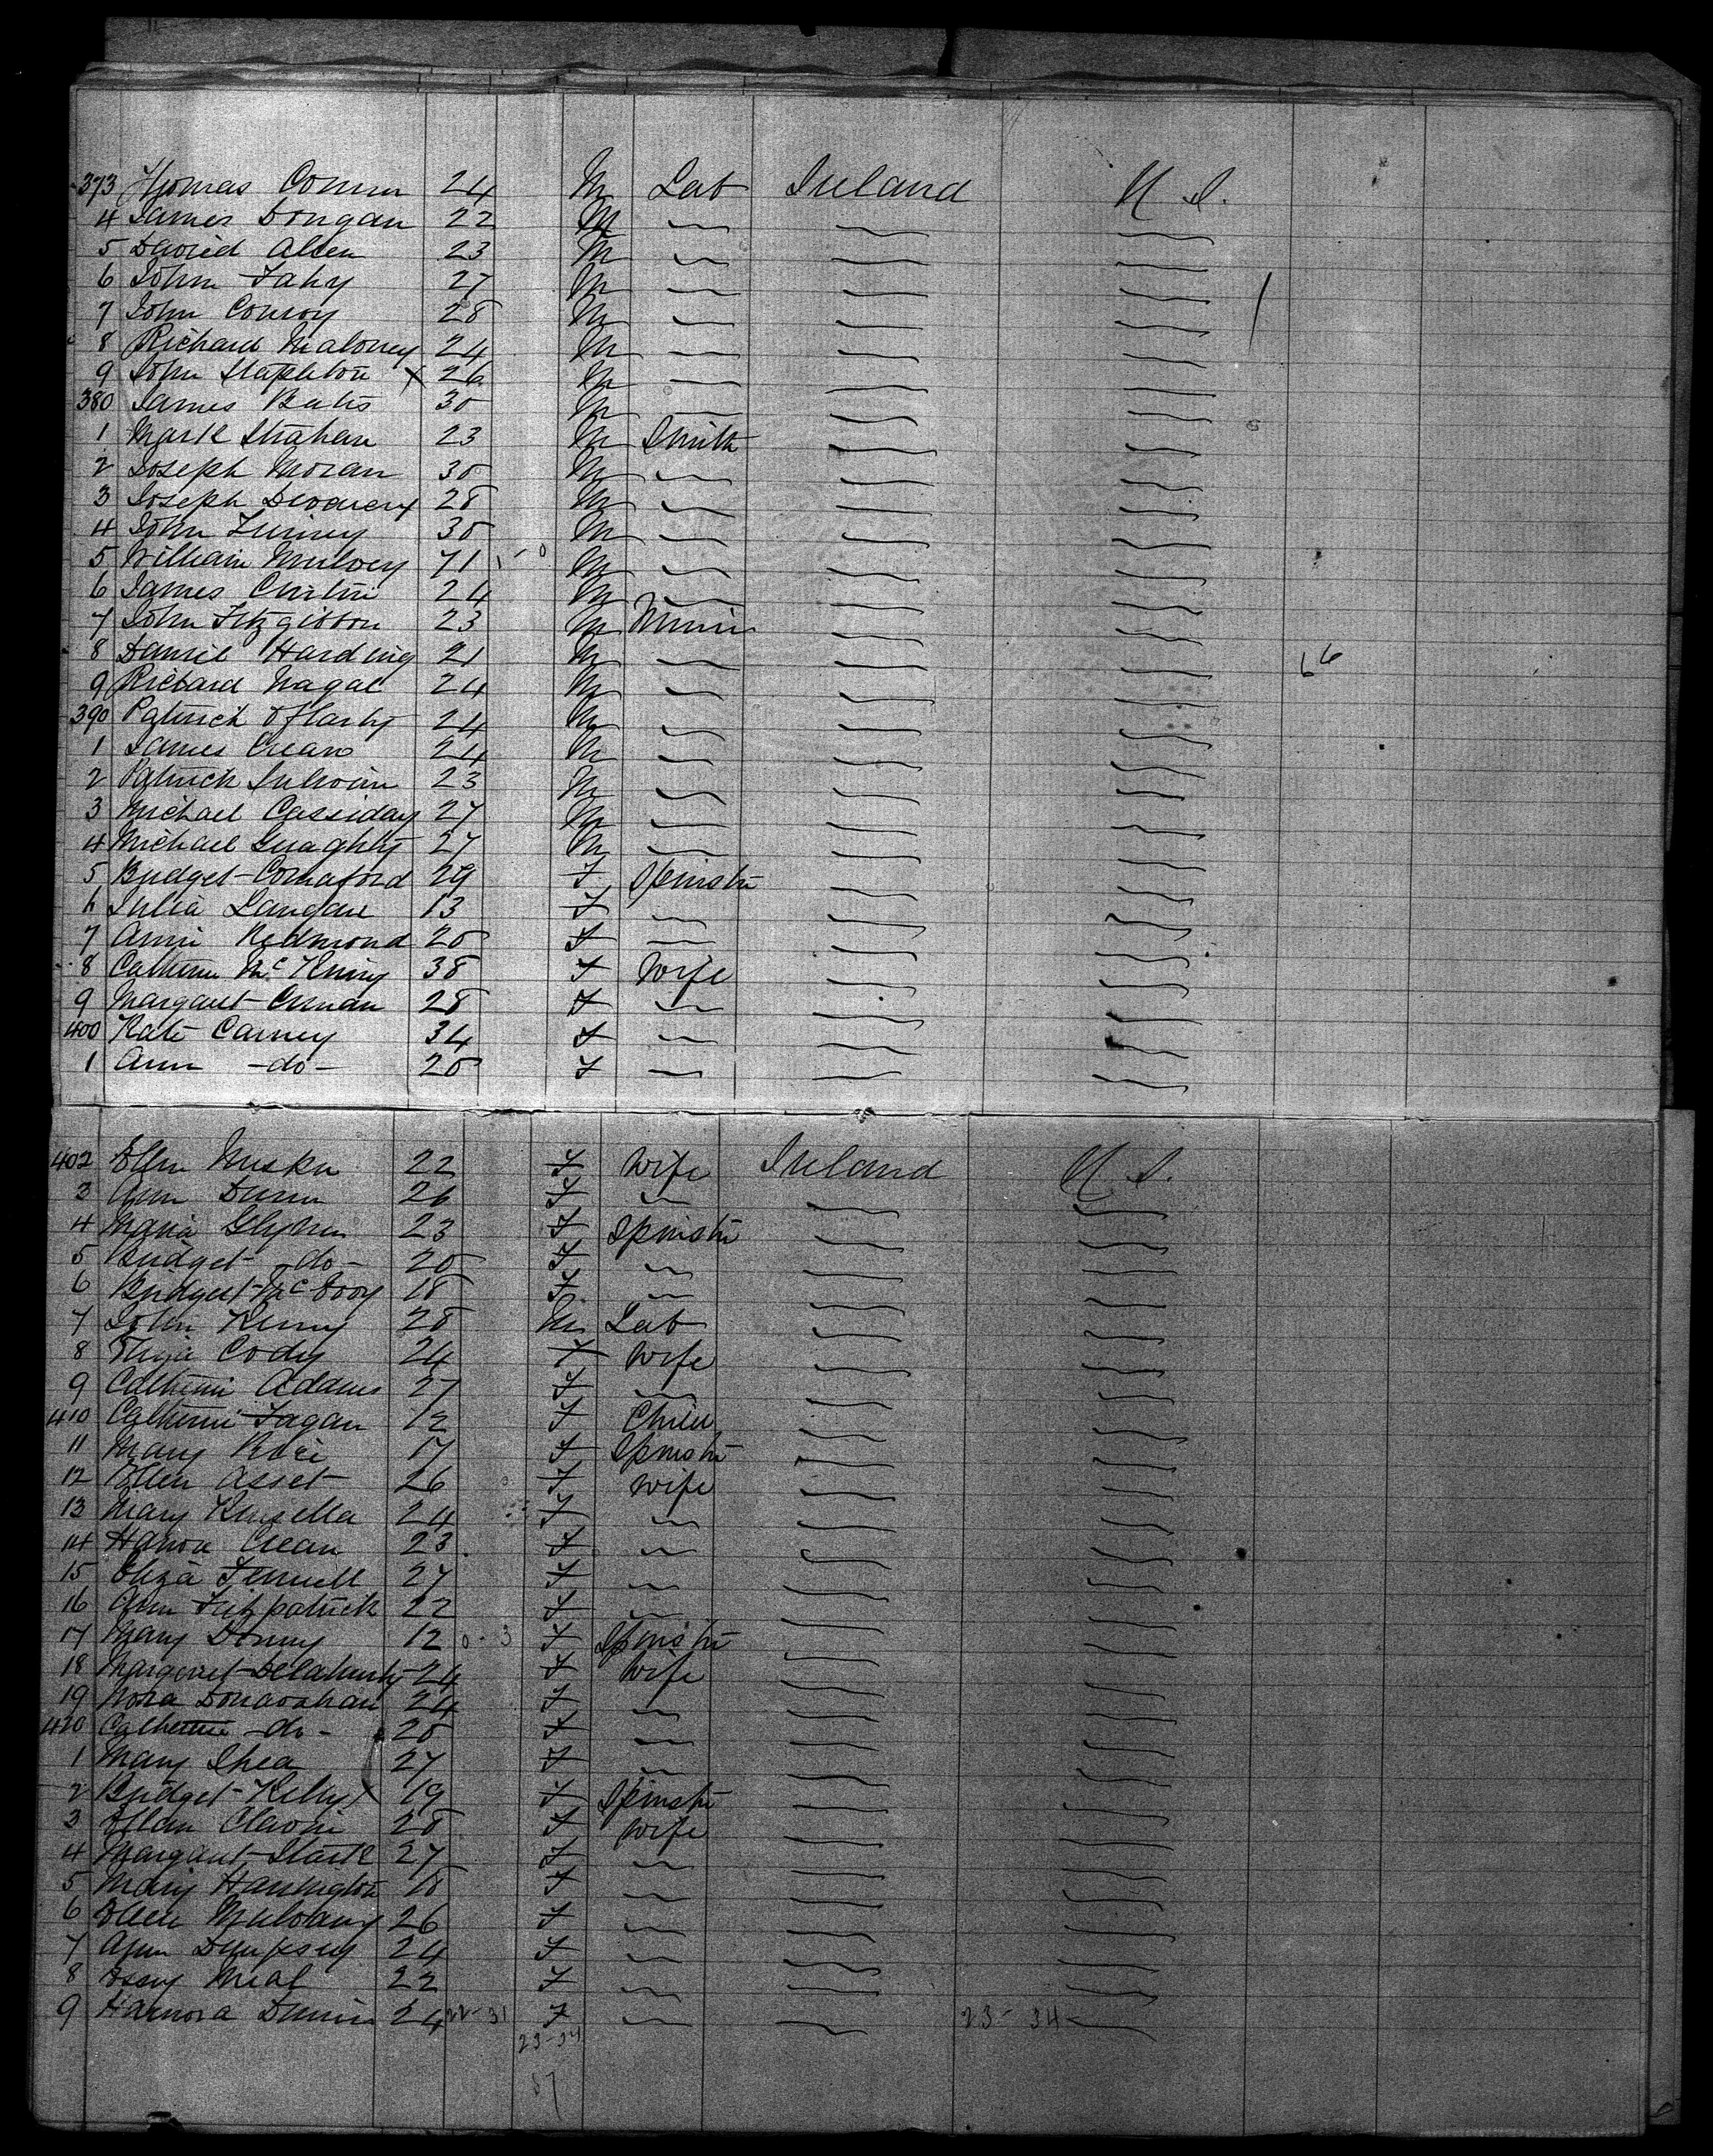 373 Thomas Connor 24 M Lab Ireland U S.
4 James Dongan 22 M
5 David Alsen 23 M
6 John Fahy 27 M
7 John Conroy 28 M
8 Richard Maloney 24 M
9 John Stapleton X 26 M
380 James Bates 30 M
1 Mark Strahan 23 M Smith
2 Joseph Moran 30 M
3 Joseph 28 M
4 John 30 M
5 William Mulvey 71 M
6 James 24 M
7 John Fitzgibbon 23 M
8 Daniel Harding 21 M 66
9 Richard Nagal 24 M
390 Patrick 24 M
1 James Crean 24 M
2 Patrick 23 M
3 Michael Cassiday 27 M
4 Michael 27 M
5 Bridget Comaford 29 F Spinster
6 Julia Langan 13 F
7 Anni Redmond 20 F
8 Catherin 38 F Wife
9 Margaret 28 F
400 Kate Carney 34 F
1 Ann -do- 20 F
402 Ellen 22 F Wife Ireland U S.
3 Ann Dunn 26 F
4 Maria Glynn 23 F Spinster
5 Bridget -do- 20 F
6 Bridget McEvoy 18 F
7 John Kenny 28 M Lab
8 Cody 24 F Wife
9 Catherin Adams 27 F
410 Catherin Fagan 12 F Child
11 Mary 17 F Spinster
12 Ellen Asset 26 F Wife
13 Mary Kinsella 24 F
14 Hanora Crean 23 F
15 Eliza Fennell 27 F
16 Ann Fitzpatrick 22 F
17 Mary 12 F Spinster
18 Margaret Delahunty 24 F Wife
19 Nora Donavahan 24 F
420 Catherine -do- 20 F
1 Mary Shea 27 F
2 Bridget Kelly X 19 F Spinster
3 Ellen 28 F Wife
4 Margaret 27 F
5 Mary Harrington 18 F
6 Ellen 26 F
7 Ann Dempsey 24 F
8 22 F
9 Hannora 24 22-31 F 23-34
23-34